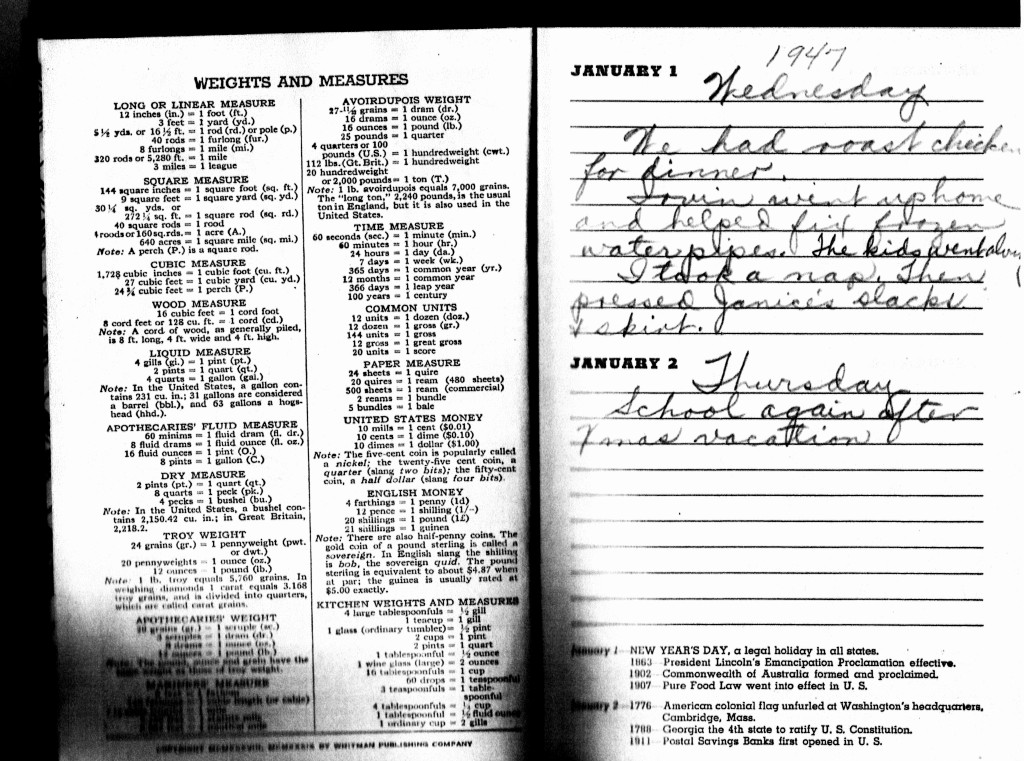 WEIGHTS AND MEASURES
LONG OR LINEAR MEASURE
12 inches (in.) = 1 foot (ft.)
3 feet = 1 yard (yd.)
5½ yds. or 16½ ft. = 1 rod (rd.) or pole (p.)
40 rods = 1 furlong (fur.)
8 furlongs = 1 mile (mi.)
320 rods or 5,280 ft. = 1 mile
3 miles = 1 league
SQUARE MEASURE
144 square inches = 1 square foot (sq. ft.)
9 square feet = 1 square yard (sq. yd.)
30¼ sq. yds. or
272¼ sq. ft. = 1 square rod (sq. rd.)
40 square rods = 1 rood
4 roods or 160 sq. rds. = 1 acre (A.)
640 acres = 1 square mile (sq. mi.)
Note: A perch (P.) is a square rod.
CUBIC MEASURE
1,728 cubic inches = 1 cubic foot (cu. ft.)
27 cubic feet = 1 cubic yard (cu. yd.)
24¾ cubic feet = 1 perch (P.)
WOOD MEASURE
16 cubic feet = 1 cord foot
8 cord feet or 128 cu. ft. = 1 cord (cd.)
Note: A cord of wood, as generally piled,
is 8 ft. long, 4 ft. wide and 4 ft. high.
LIQUID MEASURE
4 gills (gi.) = 1 pint (pt.)
2 pints = 1 quart (qt.)
4 quarts = 1 gallon (gal.)
Note: In the United States, a gallon con-
tains 231 cu. in.; 31 gallons are considered
a barrel (bbl.), and 63 gallons a hogs-
head (hhd.).
APOTHECARIES' FLUID MEASURE
60 minims = 1 fluid dram (fl. dr.)
8 fluid drams = 1 fluid ounce (fl. oz.)
16 fluid ounces = 1 pint (O.)
8 pints = 1 gallon (C.)
DRY MEASURE
2 pints (pt.) = 1 quart (qt.)
8 quarts = 1 peck (pk.)
4 pecks = 1 bushel (bu.)
Note: In the United States, a bushel con-
tains 2,150.42 cu. in.; in Great Britain,
2,218.2.
TROY WEIGHT
24 grains (gr.) = 1 pennyweight (pwt.
or dwt.)
20 pennyweights = 1 ounce (oz.)
12 ounces = 1 pound (lb.)
Note: 1 lb. troy equals 5,760 grains. In
weighing diamonds 1 carat equals 3.168
troy grains, and is divided into quarters,
which are called carat grains.
APOTHECARIES' WEIGHT
20 grains (gr.) = 1 scruple (sc.)
3 scruples = 1 dram (dr.)
8 drams = 1 ounce (oz.)
12 ounces = 1 pound (lb.)
Note: The pound, ounce and grain have the
same weight as those of troy weight.
MARINERS' MEASURE
AVOIRDUPOIS WEIGHT
27-11/32 grains = 1 dram (dr.)
16 drams = 1 ounce (oz.)
16 ounces = 1 pound (lb.)
25 pounds = 1 quarter
4 quarters or 100
pounds (U.S.) = 1 hundredweight (cwt.)
112 lbs. (Gt. Brit.) = 1 hundredweight
20 hundredweight
or 2,000 pounds = 1 ton (T.)
Note: 1 lb. avoirdupois equals 7,000 grains.
The "long ton," 2,240 pounds, is the usual
ton in England, but it is also used in the
United States.
TIME MEASURE
60 seconds (sec.) = 1 minute (min.)
60 minutes = 1 hour (hr.)
24 hours = 1 day (da.)
7 days = 1 week (wk.)
365 days = 1 common year (yr.)
12 months = 1 common year
366 days = 1 leap year
100 years = 1 century
COMMON UNITS
12 units = 1 dozen (doz.)
12 dozen = 1 gross (gr.)
144 units = 1 gross
12 gross = 1 great gross
20 units = 1 score
PAPER MEASURE
24 sheets = 1 quire
20 quires = 1 ream (480 sheets)
500 sheets = 1 ream (commercial)
2 reams = 1 bundle
5 bundles = 1 bale
UNITED STATES MONEY
10 mills = 1 cent ($0.01)
10 cents = 1 dime ($0.10)
10 dimes = 1 dollar ($1.00)
Note: The five-cent coin is popularly called
a nickel; the twenty-five cent coin, a
quarter (slang two bits); the fifty-cent
coin, a half dollar (slang four bits).
ENGLISH MONEY
4 farthings = 1 penny (1d)
12 pence = 1 shilling (1/-)
20 shillings = 1 pound (1£)
21 shillings = 1 guinea
Note: There are also half-penny coins. The
gold coin of a pound sterling is called a
sovereign. In English slang the shilling
is bob, the sovereign quid. The pound
sterling is equivalent to about $4.87 when
at par; the guinea is usually rated at
$5.00 exactly.
KITCHEN WEIGHTS AND MEASURES
4 large tablespoonfuls = ½ gill
1 teacup = 1 gill
1 glass (ordinary tumbler) = ½ pint
2 cups = 1 pint
2 pints = 1 quart
1 tablespoonful = ½ ounce
1 wine glass (large) = 2 ounces
16 tablespoonfuls = 1 cup
60 drops = 1 teaspoonful
3 teaspoonfuls = 1 table-
spoonful
4 tablespoonfuls = ¼ cup
1 tablespoonful = ½ fluid ounce
1 ordinary cup = 2 gills
COPYRIGHT MCMXXXVIII, MCMXXXIX BY WHITMAN PUBLISHING COMPANY
1947
JANUARY 1
Wednesday
We had roast chicken
for dinner.
went up home
and helped fix frozen
water pipes. The kids went
I took a nap. Then
pressed Janice's slacks
& skirt.
JANUARY 2
Thursday
School again after
Xmas vacation
January 1 NEW YEAR'S DAY, a legal holiday in all states.
1863 President Lincoln's Emancipation Proclamation effective.
1902 Commonwealth of Australia formed and proclaimed.
1907 Pure Food Law went into effect in U. S.
January 2 1776 American colonial flag unfurled at Washington's headquarters,
Cambridge, Mass.
1788 Georgia the 4th state to ratify U. S. Constitution.
1911 Postal Savings Banks first opened in U. S.